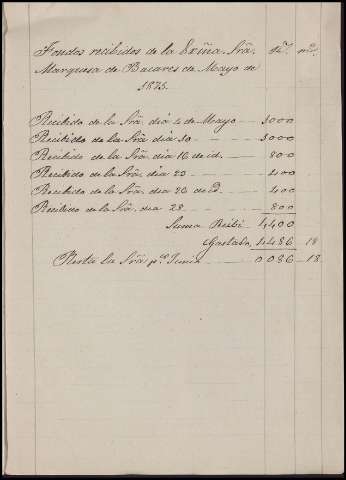 Fondos recibidos de la Exma. Sra. Rs. ms.
Marquesa de Bacares de Mayo de
1875.
Recibido de la Sra. dia 4 de Mayo 1000
Recibido de la Sra dia 10 1000
Recibido de la Sra. dia 16 de id. 800
Recibido de la Sra. dia 20 400
Recibido de la Sra. dia 26 de id. 400
Recibido de la Sra. dia 28 800
Suma Recibi 4400
Gastado 4486 18
Resta la Sra pa. Junio 0086 18